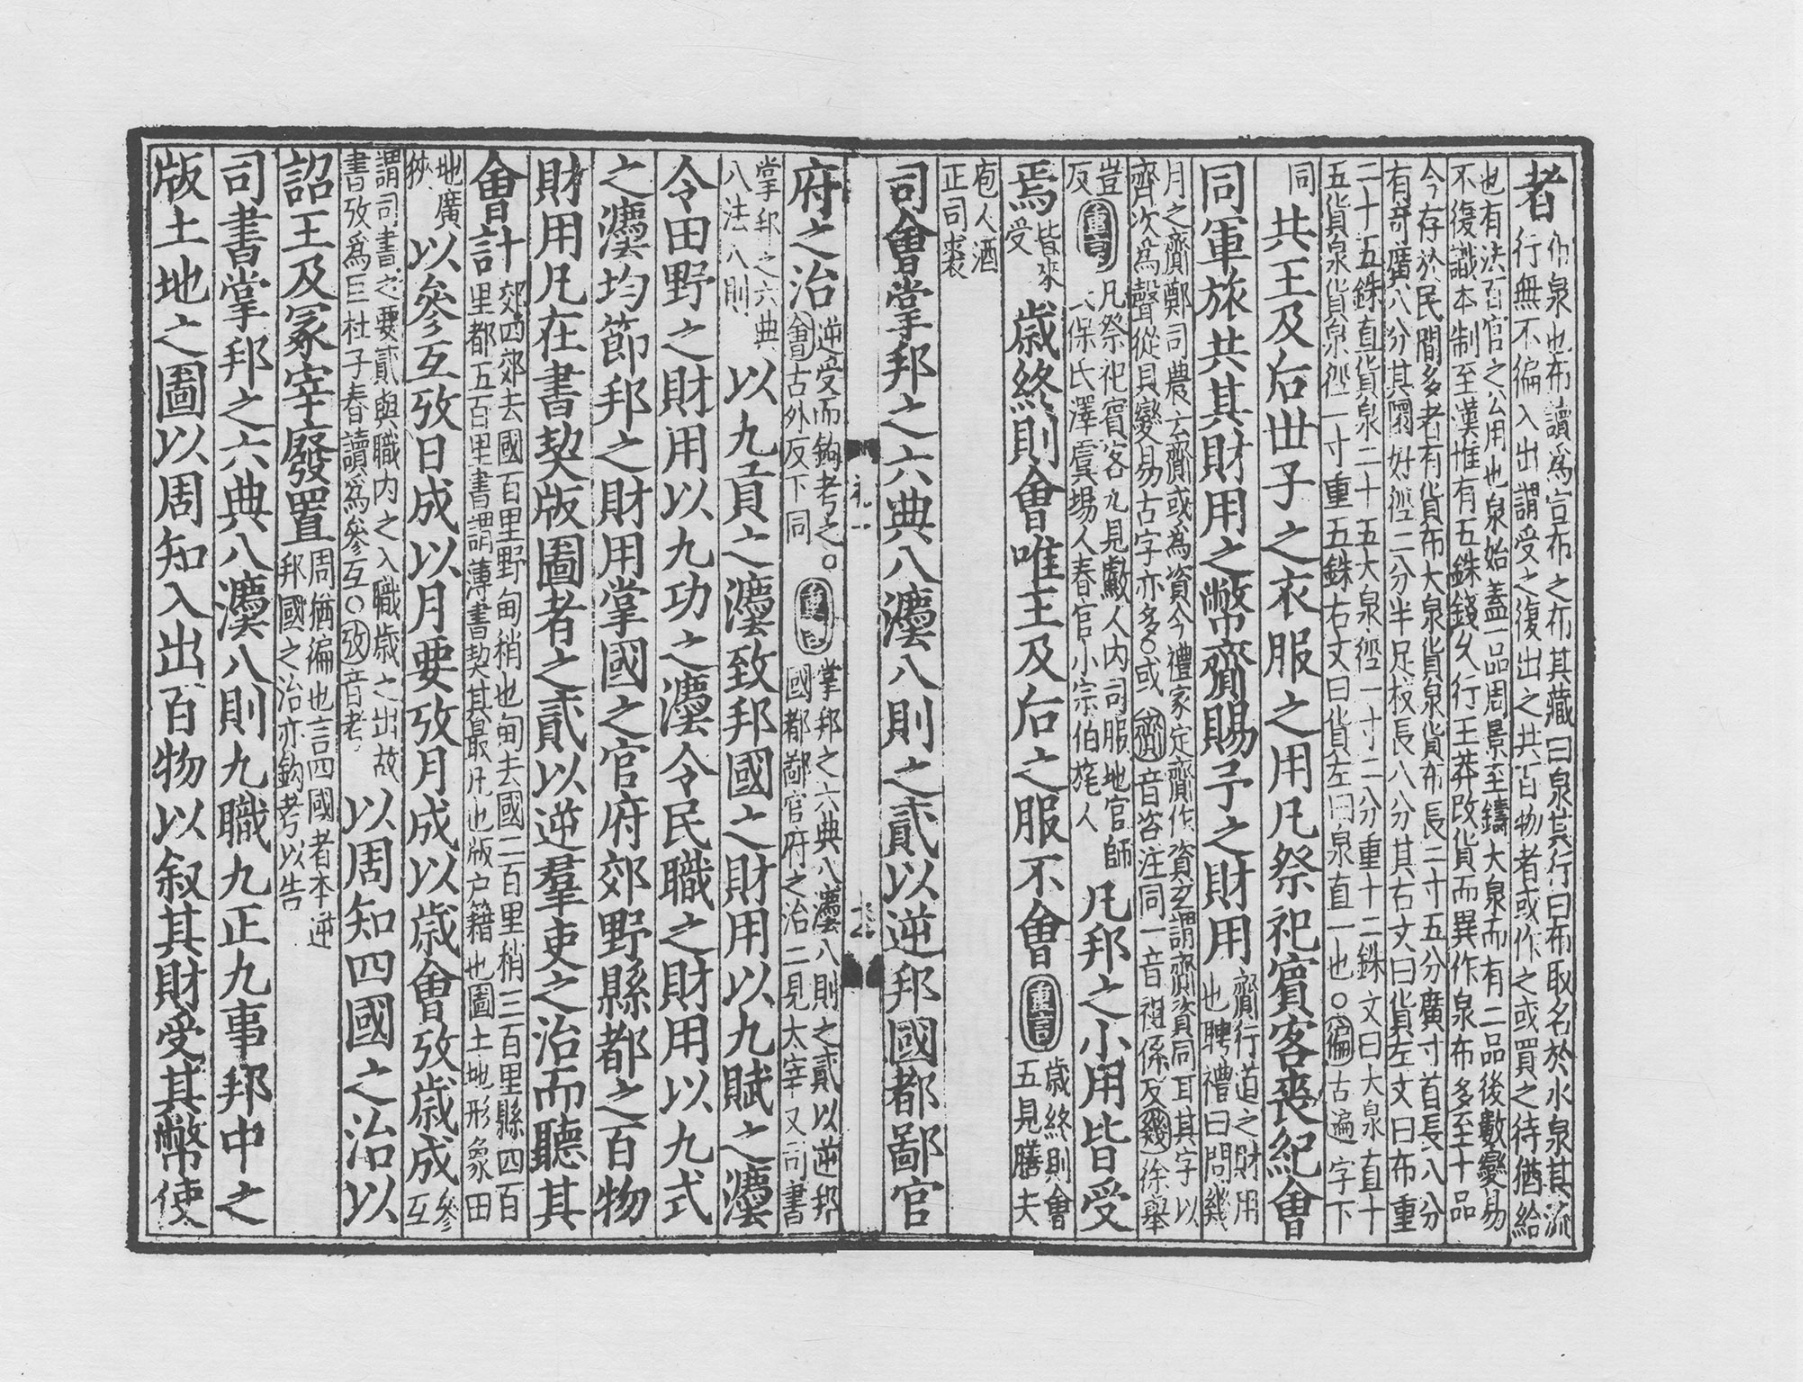 者布泉也布讀爲宣布之布其藏曰泉其行曰布取名於水泉其流行無不徧入出謂受之復出之共百物者或作之或買之待猶給
也有法百官之公用也泉始蓋一品周景至鑄大泉而有二品後數變易不復識本制至漢惟有五銖錢久行王莽改貨而異作泉布多至十品
今存於民間多者有貨布大泉貨泉貨布長二寸五分廣寸首長八分有奇廣八分其圜好徑二分半足枝長八分其右文曰貨左文曰布重
二十五銖直貨泉二十五大泉徑一寸二分重十二銖文曰大泉直十五貨泉貨泉徑一寸重五銖右文曰貨左曰泉直一也○徧古遍字下
同共王及后世子之衣服之用凡祭祀賓客喪紀會
同軍旅共其財用之幣齎賜予之財用齎行道之財用也聘禮曰問幾
月之齎鄭司農云齎或爲資今禮家定齎作資玄謂齎資同耳其字以齊次爲聲從貝變易古字亦多○或齎音咨注同一音祖係反幾徐舉
豈反重言凡祭祀賓客九見獻人内司服地官師保氏澤虞場人春官小宗伯旄人凡邦之小用皆受
焉皆來受歲終則會唯王及后之服不會重言歲終則會五見膳夫
庖人酒正司裘
司會掌邦之六典八灋八則之貳以逆邦國都鄙官
府之治逆受而鉤考之○會古外反下同重言掌邦之六典八灋八則之貳以逆邦國都鄙官府之治二見太宰又司書
掌邦之六典八法八則以九貢之灋致邦國之財用以九賦之灋
令田野之財用以九功之灋令民職之財用以九式
之灋均節邦之財用掌國之官府郊野縣都之百物
財用凡在書契版圖者之貳以逆羣吏之治而聽其
會計郊四郊去國百里野甸稍也甸去國二百里稍三百里縣四百里都五百里書謂薄書契其最凡也版户籍也圖土地形象田
地廣狹以參互攷日成以月要攷月成以歲會攷歲成參互
謂司書之要貳與職内之入職歲之出故書攷爲巨杜子春讀爲參互○攷音考以周知四國之治以
詔王及冢宰廢置周猶徧也言四國者本逆邦國之治亦鉤考以告
司書掌邦之六典八灋八則九職九正九事邦中之
版土地之圖以周知入出百物以叙其財受其幣使